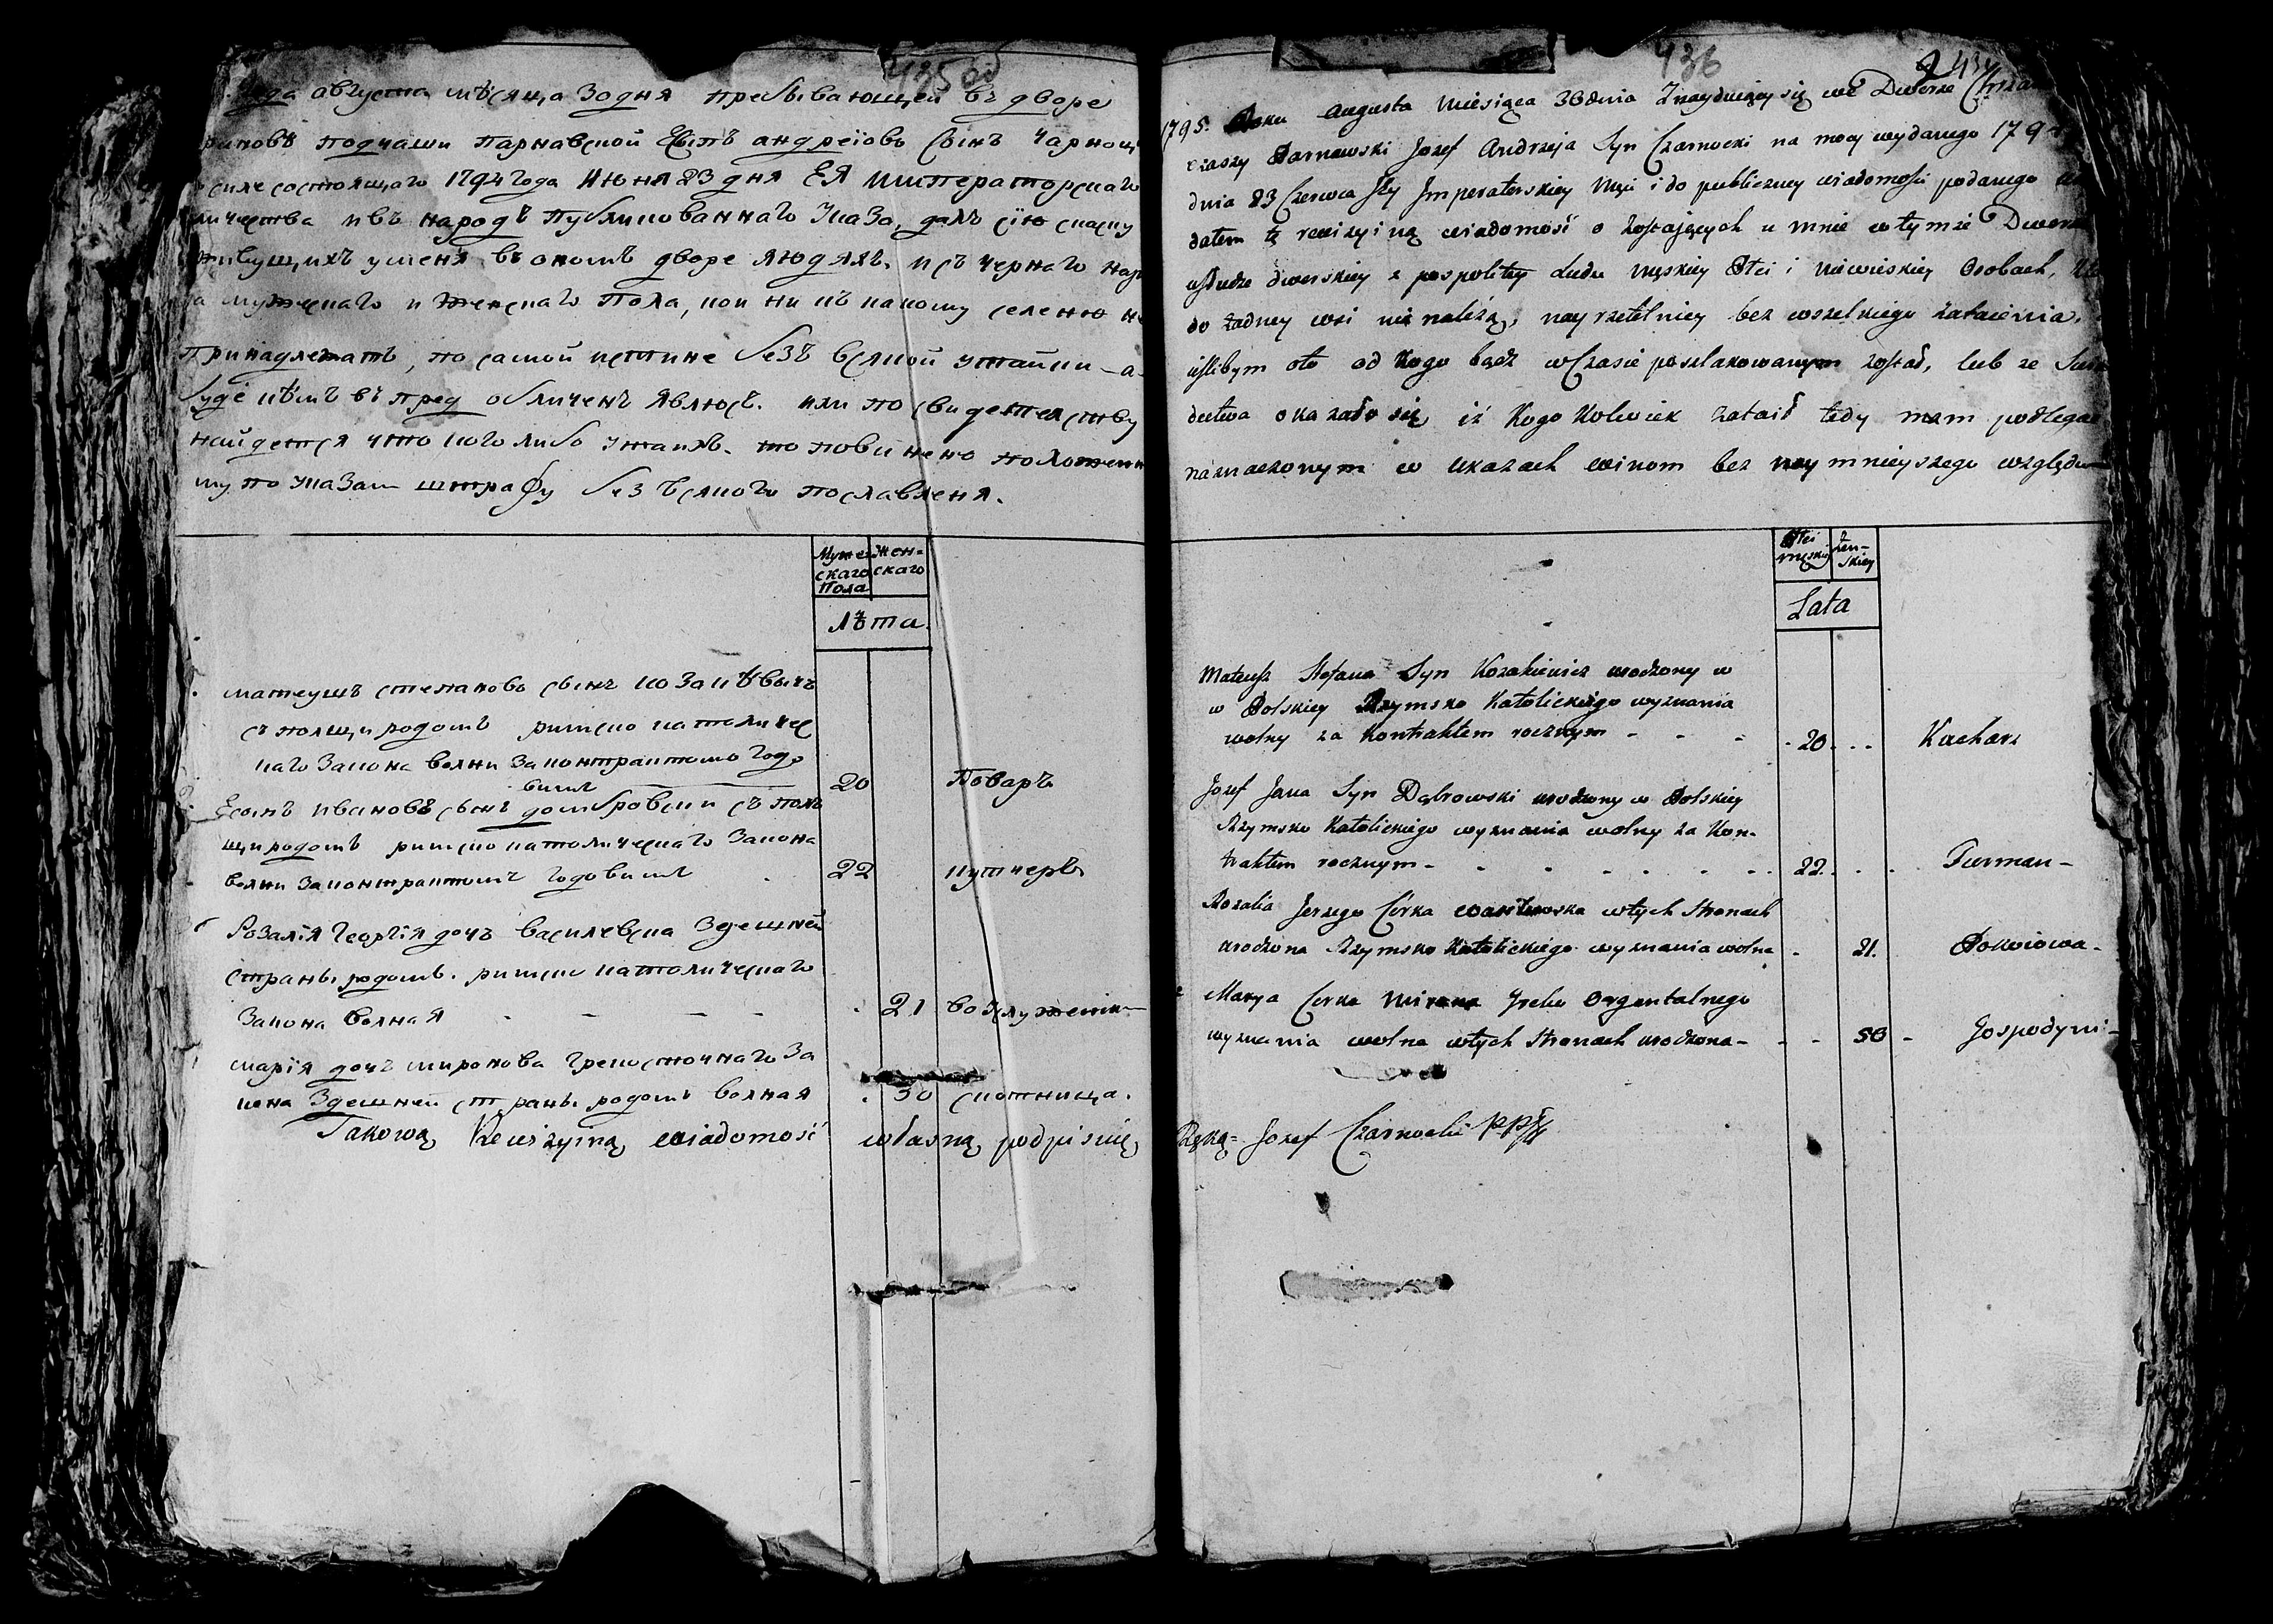 435 об
года августа мѣсяца 30 дня пребывающей въ дворе
подчаши Парнавской Есыпъ андреіовъ сынъ Чарноц
силе состоящаго 1794 года Июня 23 дня ЕЯ императорскаго
личества ивъ народъ публикованнаго Указа, далъ сію скаску
живущихъ уменя въ ономъ дворе людяхъ, исъ чернаго нар
да мужескаго и женскаго пола, кои ни къ какому селенію не
принадлежатъ, по самой истине безъ всякой утайки - а
буде кѣмъ въ пред обличенъ явлюсь. или по свидетелству
найдется что кого либо утаилъ. то повинено положенн
му по указам штрафу без всякого пославленя.
Муже-
скаго
Пола
Жен-
скаго
Лѣта.
матеушъ степановъ сынъ козакѣвичъ
съ полщи родомъ римско католичес
каго закона волни законтрактомъ годо
вимъ 20 Поваръ
Есыпъ ивановъ сынъ домбровски съ пол
щи родомъ римско католическаго закона
волни законтрактомъ годовимъ 22 кутчеръ
Розалія Георгія дочъ василевска Здешней
страны родомъ. римско католическаго
закона волная - - - - 21
марія дочъ миронова греко сточнаго за
кона Здешней страны родомъ волная . 50 скотница.
Takową Rewizyiną wiadomość własną podpisuię
436
1795. Roku Augusta Miesiąca 30 dnia Znayduiący się we Dworze
czaszy Parnawski Jozef Andrzeja Syn Czarnocki na mocy wydanego 179
dnia 23 Czerwca Jey Imperatorskiey Mści i do publiczney wiadomości podanego
datem tę rewizyiną wiadomość o zostających u mnie wtymże Dworze
usłudze dworskiey z pospolitey Ludu męskiey Płci i niewieskiey Osobach,
do żadney wsi nie należą, nayrzetelniey bez wszelkiego zataienia.
ieslibym oto od Kogo bądź wCzasie poszlakowanym został, lub ze
dectwa okazało się, iż Kogo Kolwiek zataił tedy mam podlegać
naznaczonym w Ukazach winom bez naymnieyszego względu
Płci
męskiey
żen-
skiey
Lata
Mateusz Stefana Syn Kozakiewicz urodzony w
w Polskiey Rzymsko Katolickiego wyznania
wolny za Kontraktem rocznym - - - 20 . . . Kucharz
Jozef Jana Syn Dąbrowski urodzony w Polskiey
Rzymsko Katolickiego wyznania wolny za Kon-
traktem rocznym - - - - - - 22. . . . Furman -
Rozalia Jerzego Córka Wasilewska wtych Stronach
urodzona Rzymsko Katolickiego wyznania wolna - 21. Pokoiowa -
Marya Corka Mirona Greko Orgentalnego
wyznania wolna wtych Stronach urodzona - - - 50 - Gospodyni -
Ręką = Jozef Czarnocki